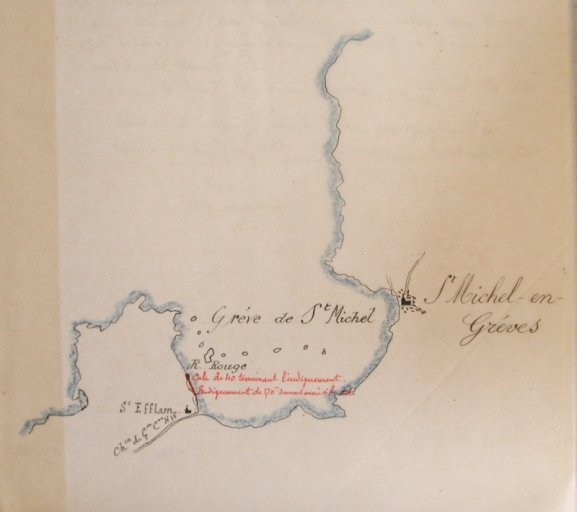 St Michel-en-
Gréves
Gréve de St Michel
R. Rouge
Cale de 40 terminant l'endiguement
Endiguement de 170m
St Efflam
Chin de Gde Con No